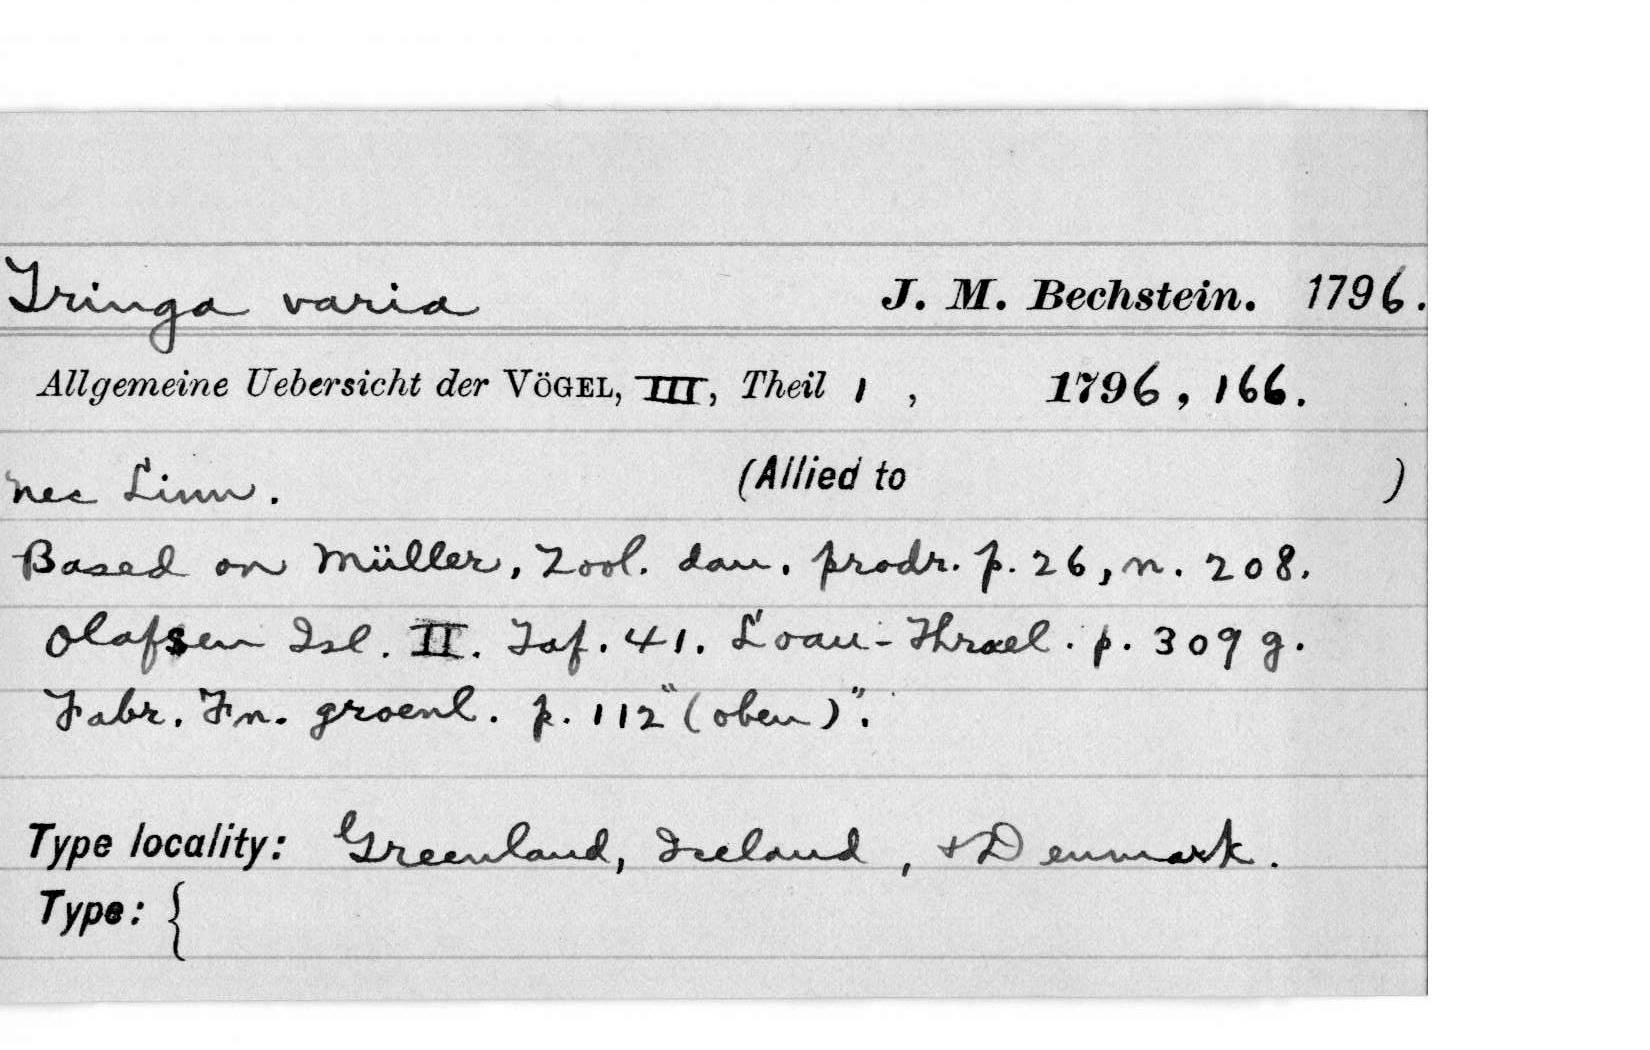 Tringa varia J. M. Bechstein. 1796.
Allgemeine Uebersicht der VÖGEL, III, Theil 1 , 1796, 166.
nec Linn. (Allied to )
Based on Müller, Zool. dan. prodr. p. 26, n. 208.
Olafsen Isl. II. Taf. 41. Loau-Thrael. p. 309 g.
Fabr. Fn. groenl. p. 112 "(oben)".
Type locality: Greenland, Iceland, + Denmark.
Type: {